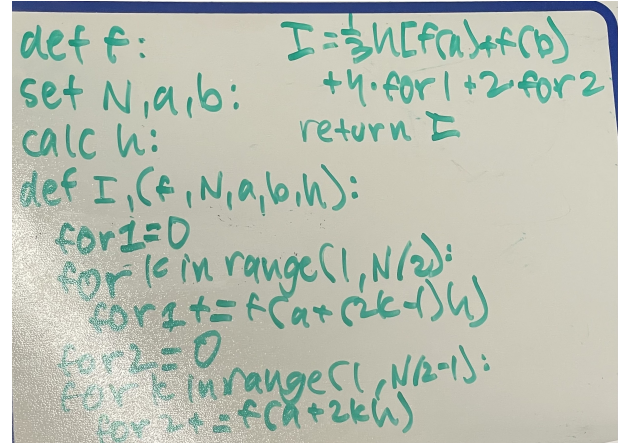 def f:
set N,a,b:
calc h:
def I,(f,N,a,b,h):
for1=0
for k in range(1,N/2):
for1+=f(a+(2k-1)h)
for2=0
for k in range(1,N/2-1):
for2+=f(a+2kh)
I=1/3h[f(a)+f(b)
+4·for1+2·for2
return I